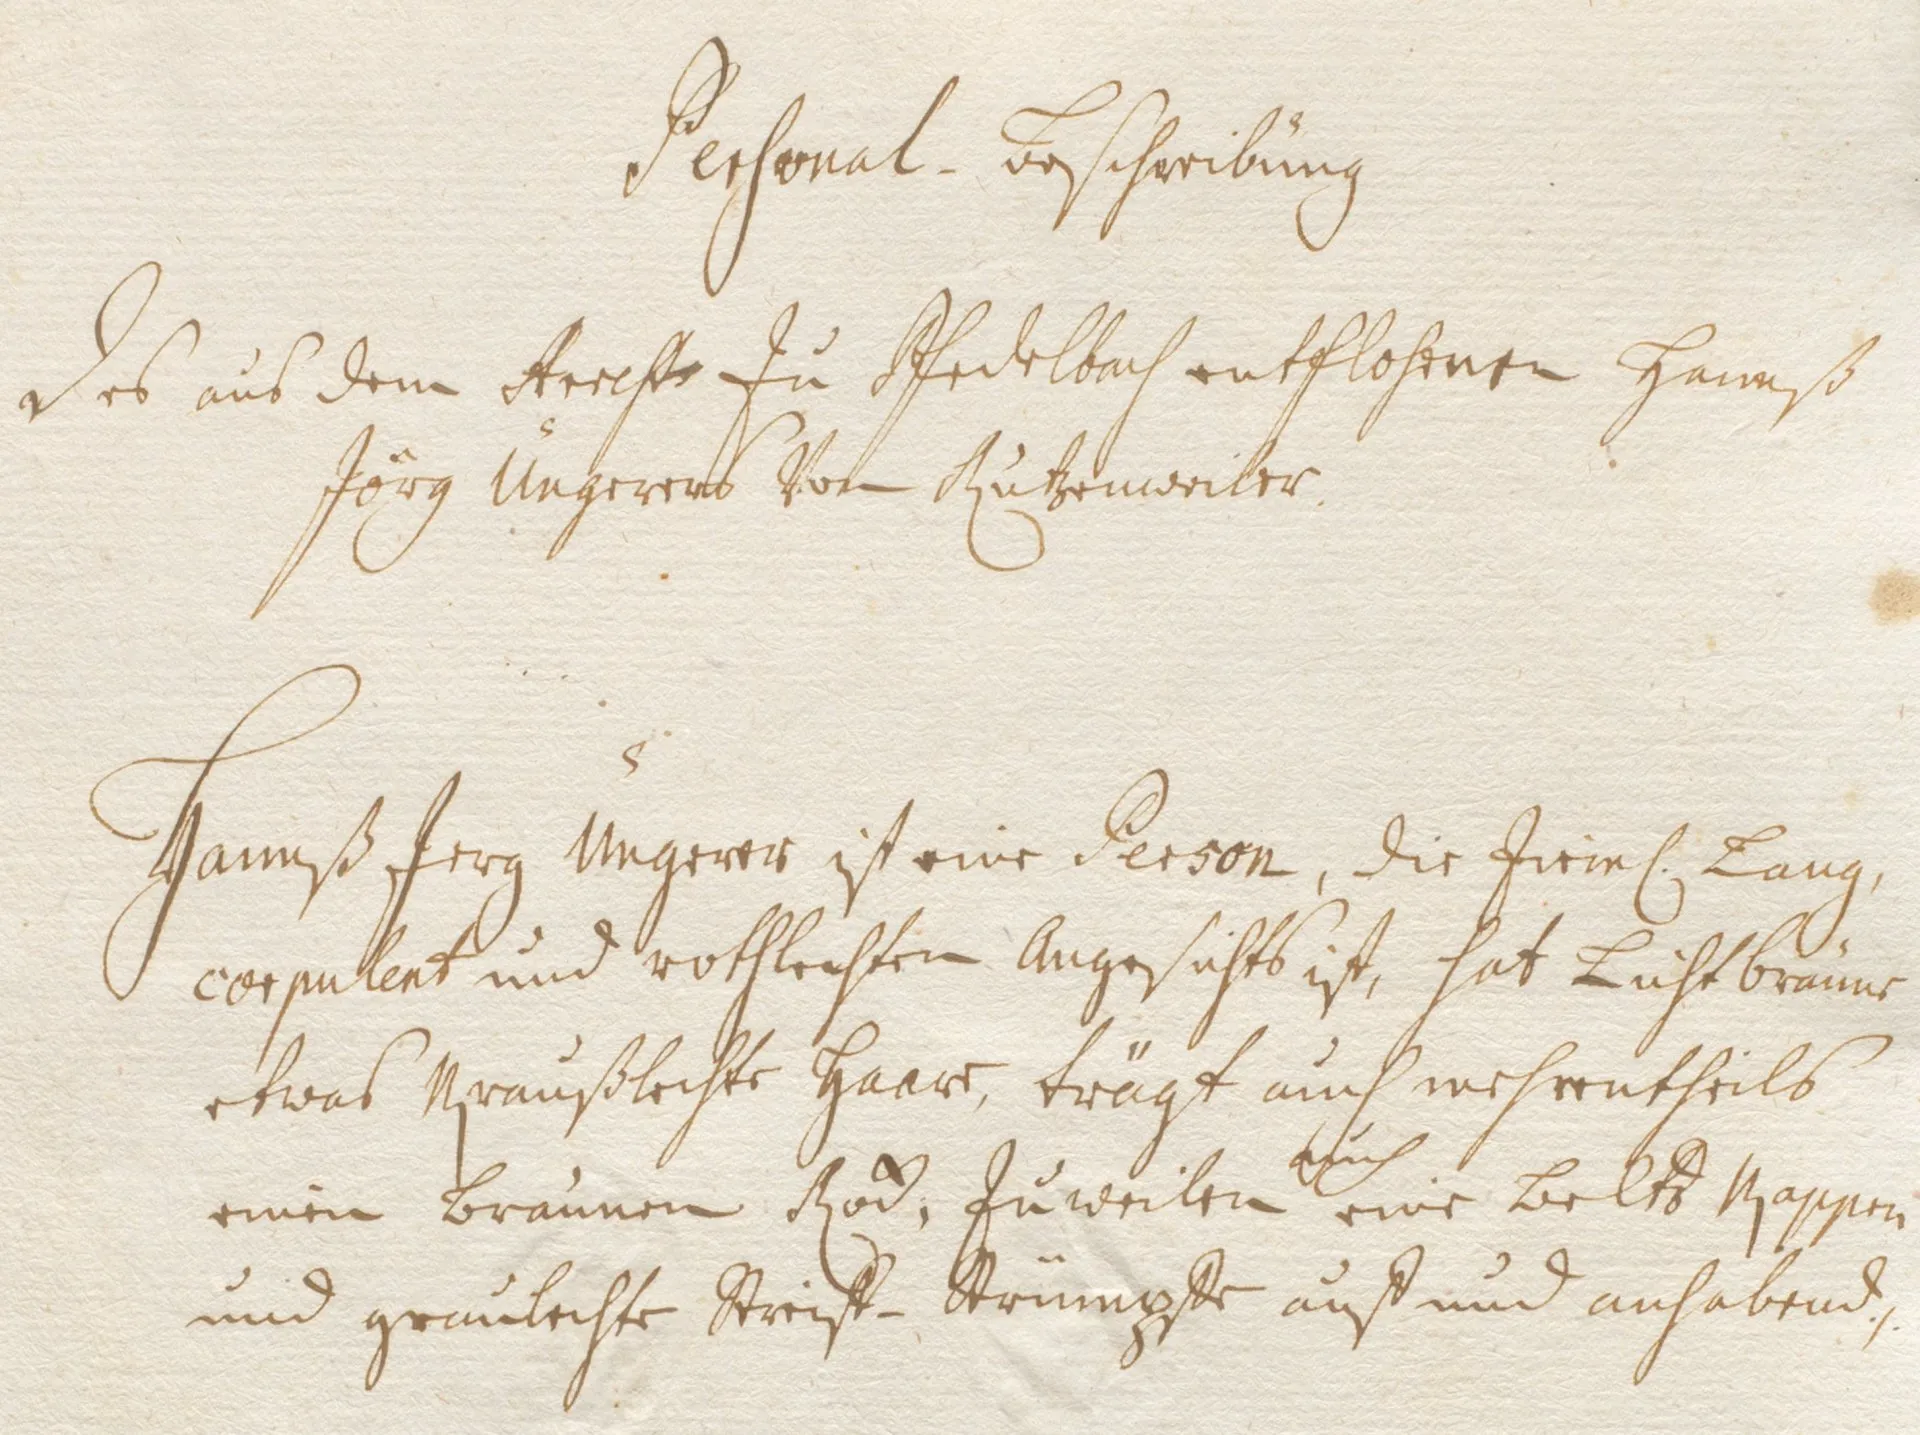 Personal-Beschreibung
Des aus dem Arrest zu Pfedelbach entflohenen Hannß
Jörg Ungerers von Kuzenweiler.
Hannß Jerg Ungerer ist eine Person, die zieml. Lang,
corpulent und rothlechten Angesichts ist, hat Lichtbraune
etwas Kraußlechte Haare, trägt auch mehrentheils
einen braunen Rock, zuweilen auch eine Beltz Kappen
und graulechte Streiff-Strümpffe auff und anhabend.